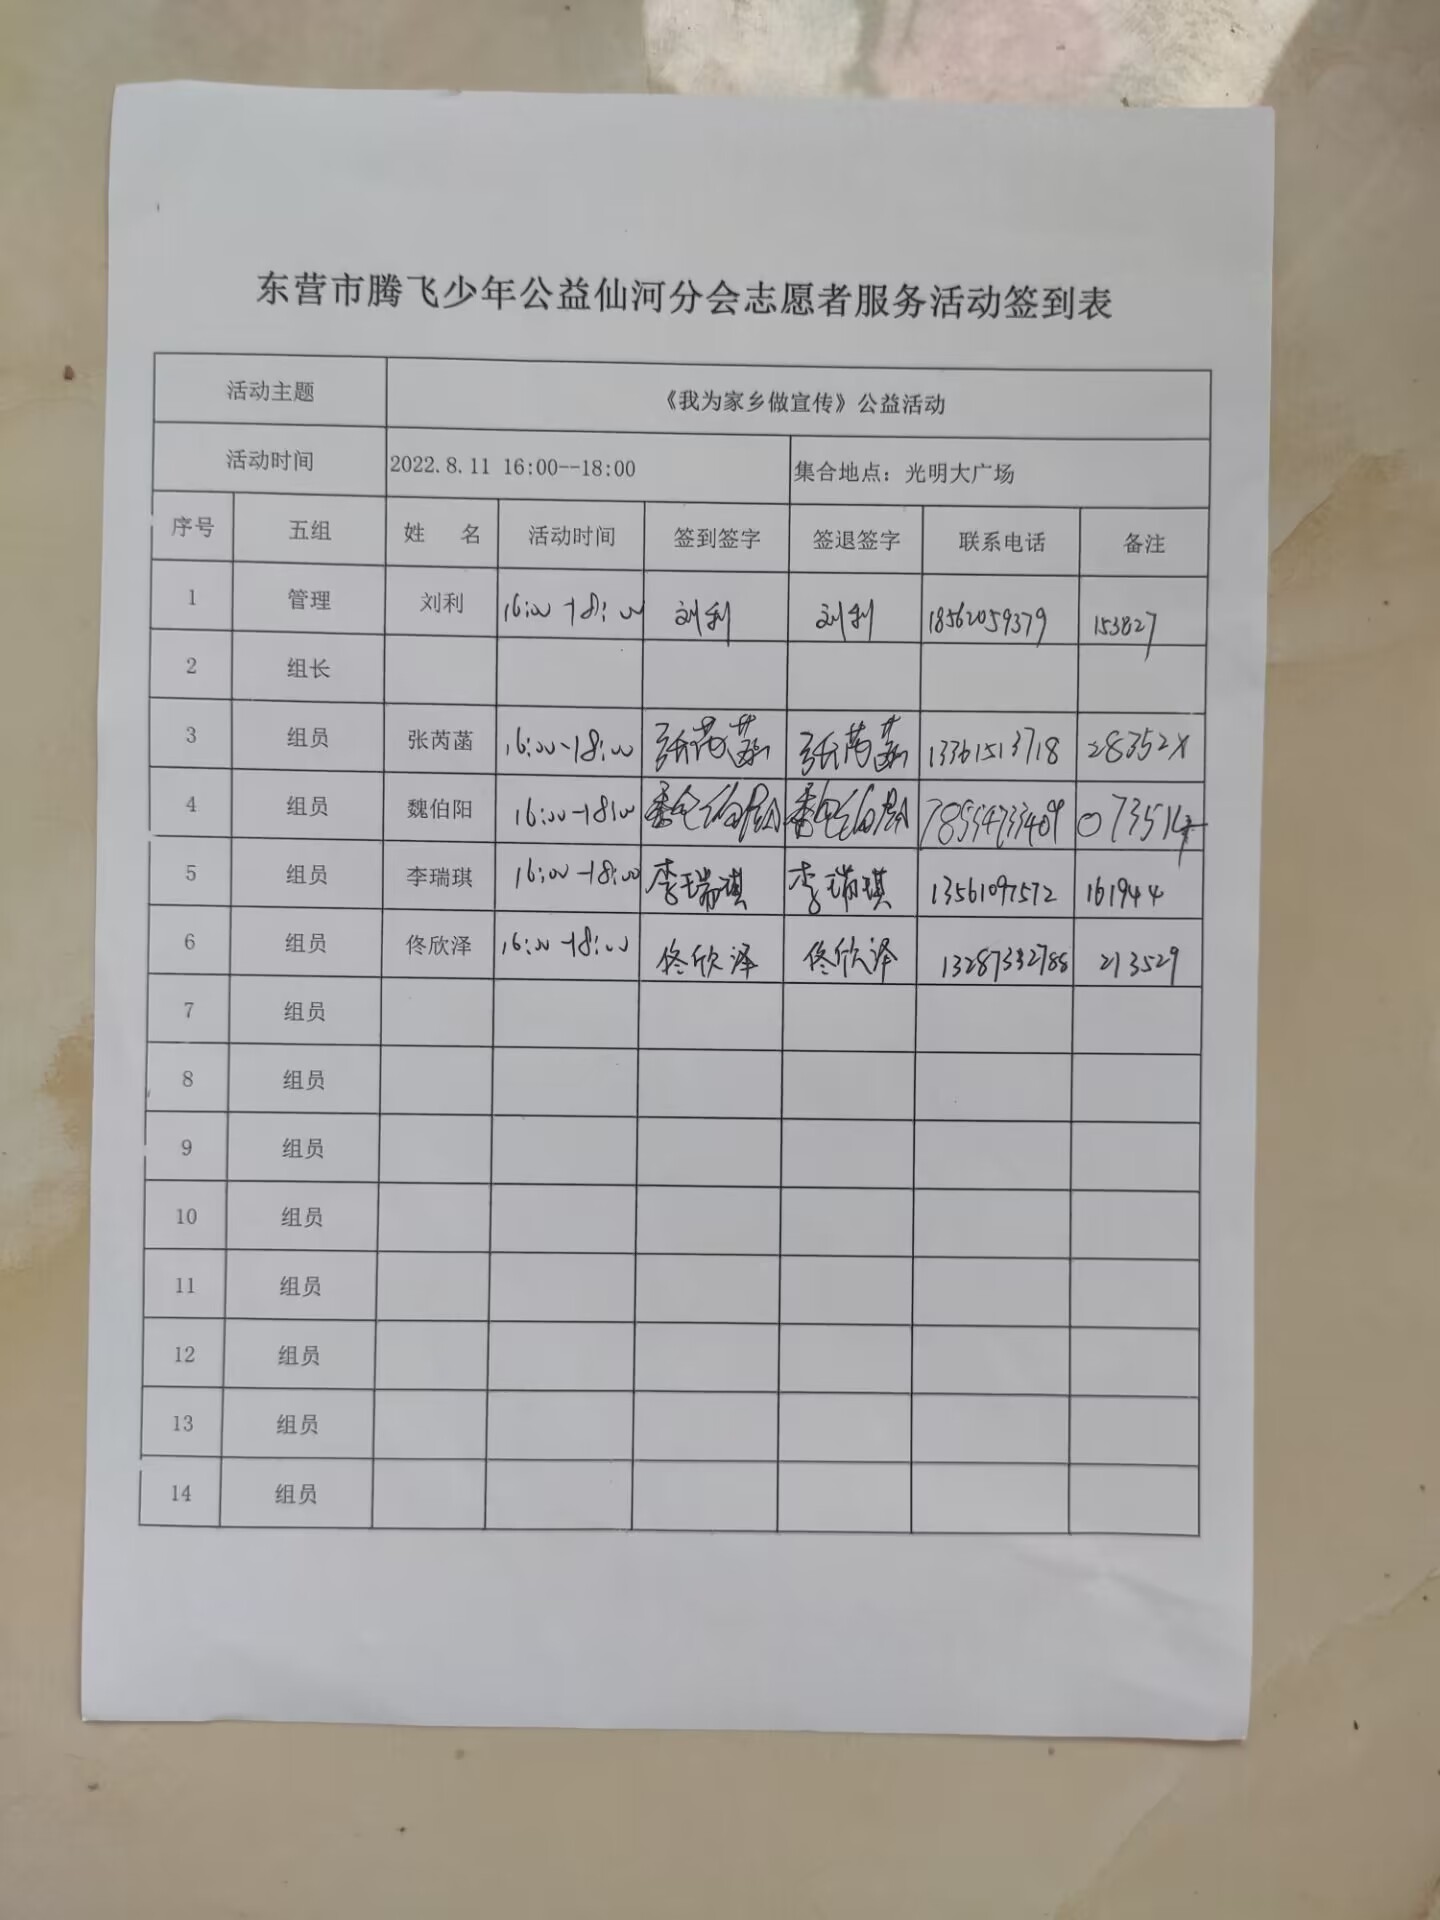 东营市腾飞少年公益仙河分会志愿者服务活动签到表
活动主题 《我为家乡做宣传》公益活动
活动时间 2022.8.11 16:00--18:00 集合地点：光明大广场
序号 五组 姓 名 活动时间 签到签字 签退签字 联系电话 备注
1 管理 刘利 16:00-18:00 刘利 刘利 18562059379 153827
2 组长
3 组员 张芮菡 16:00-18:00 张芮菡 张芮菡 13361513718 28352X
4 组员 魏伯阳 16:00-18:00 魏伯阳 魏伯阳
5 组员 李瑞琪 16:00-18:00 李瑞琪 李瑞琪 13561097572 161944
6 组员 佟欣泽 16:00-18:00 佟欣泽 佟欣泽 13287332788 213529
7 组员
8 组员
9 组员
10 组员
11 组员
12 组员
13 组员
14 组员